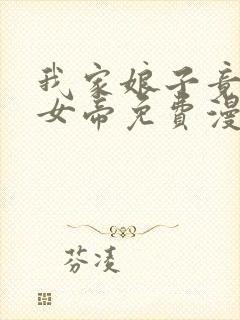 我家娘子竟
女帝免费漫
芬凌